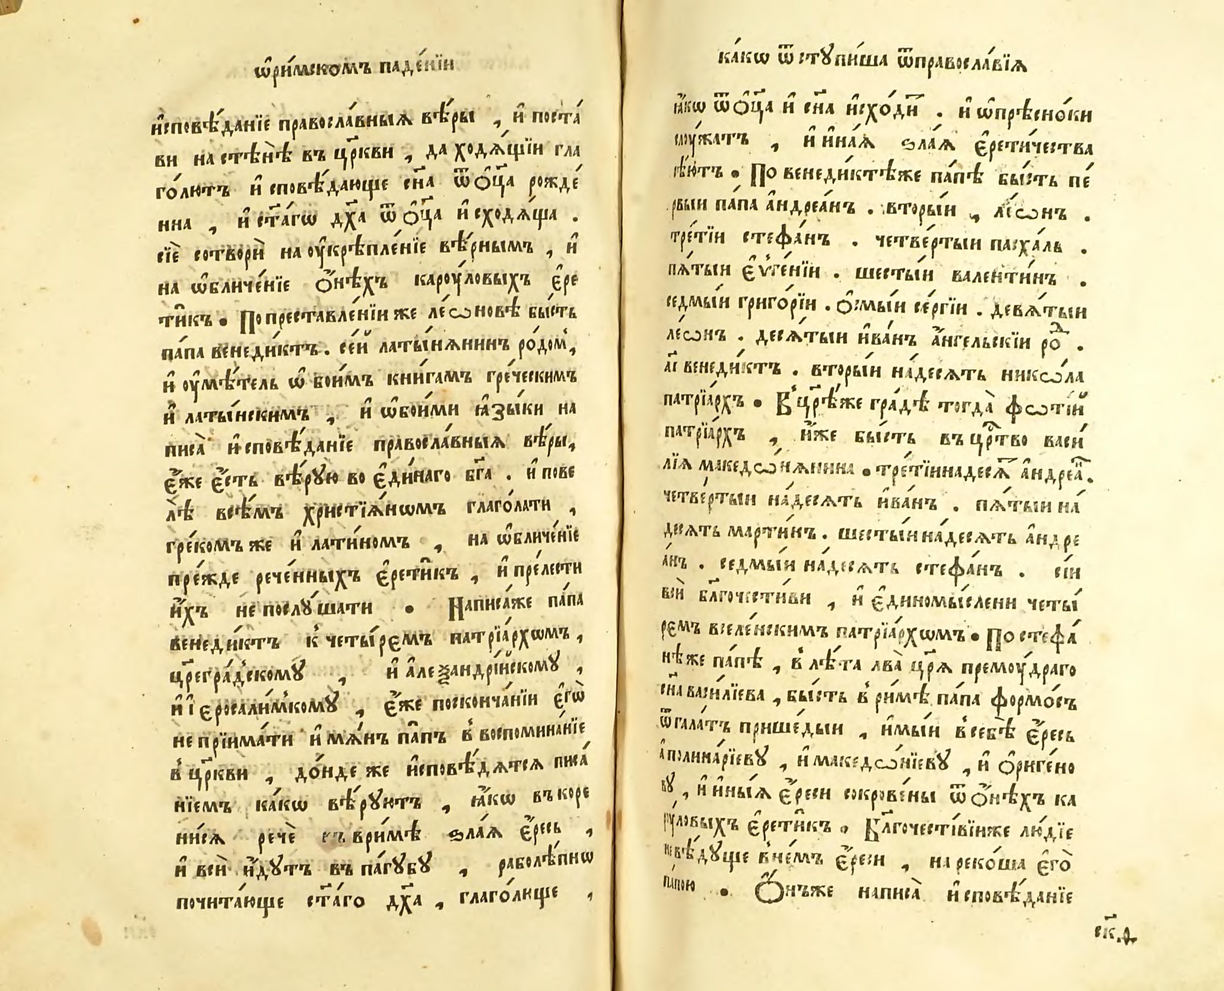 ѡ҆ри́мскомъ паде́нїи
и҆сповѣ́данїе правосла́вныѧ вѣ́ры , и҆ поста́
ви на стѣ́нѣ въ цр҃кви , да ходѧ́щїи гла
го́лютъ и҆сповѣ́дающе сн҃а ѿ ѻ҆ц҃а рожде́
нна , и҆ ст҃а́гѡ дх҃а ѿ ѻ҆ц҃а и҆сходѧ́ща .
сїѐ сотворѝ на оу҆крѣпле́нїе вѣ́рнымъ , и҆
на ѡ҆бличе́нїе ѻ҆́нѣхъ кароу́ловыхъ є҆ре
ти҄къ . По преставле́нїи же ле́ѡновѣ бы́сть
па́па венеди́ктъ . се́й латы́нѧнинъ ро́дом ,
и҆ оу҆мѣ́тель ѡ҆бои́мъ кни́гамъ гре́ческимъ
и҆ латы́нскимъ , и҆ ѡ҆бои́ми ꙗ҆зы́ки на
писа̀ и҆сповѣ́данїе правосла́вныѧ вѣ́ры ,
є҆́же є҆́сть вѣ́рую во є҆ди́наго бг҃а . и҆ пове
лѣ̀ всѣ́мъ христїѧ́нѡмъ глаго́лати ,
гре́комъ же и҆ лати́номъ , на ѡ҆бличе́нїе
пре́жде рече́нныхъ є҆рети҄къ , и҆ пре́лести
и҆́хъ не послꙋ́шати . Написа́же па́па
венеди́ктъ к̾ четы́ремъ патрїа́рхѡмъ ,
цр҃егра́дскомꙋ , и҆ а҆леѯандрі́йскомꙋ ,
и҆ і҆еросали́мкомꙋ , є҆́же по сконча́нїи є҆гѡ̀
не прїима́ти и҆мѧ́нъ па҄пъ в̾ воспомина́нїе
в̾ цр҃кви , до́нде же и҆сповѣ́дѧтсѧ писа́
нїемъ ка́кѡ вѣ́руютъ , ꙗ҆́кѡ въ коре
нисѧ речѐ въ ри́мѣ ѕла́ѧ є҆́ресь ,
и҆ всѝ и҆́дутъ въ па́губꙋ , раболѣ́пнѡ
почита́юще ст҃а́го дх҃а , глаго́люще ,
ка́кѡ ѿстꙋпи́ша ѿправосла́вїѧ
ꙗ҆́кѡ ѿ ѻ҆ц҃а и҆ сн҃а и҆схо́ди . и҆ ѡ҆прѣсно́ки
слу́жатъ , и҆ и҆на́ѧ ѕла́ѧ є҆рети́чества
дѣ́ютъ . По венеди́ктѣже па́пѣ бы́сть пе́
рвыи па́па а҆ндреа́нъ . вторы́и , ле́ѡнъ .
тре́тїи стефа́нъ . четве́ртыи пасха́ль .
пѧ́тыи є҆ѵге́нїи . шесты́и валенти́нъ .
седмы́и григо́рїи . ѻ҆смы́и се́ргїи . девѧ́тыи
ле́ѡнъ . десѧ́тыи и҆ва́нъ а҆́нгельскїи ро́д .
а҃і венеди́ктъ . вторы́и на́десѧть никѡ́ла
патрїа́рхъ . В̾ цр҃ѣ́же гра́дѣ тогда̀ фѡті́й
патрїа́рхъ , и҆́же бы́сть въ цр҃тво васи́
лїѧ македѡ́нѧнина . тре́тїи на́десѧт а҆ндреа́н .
четве́ртыи на́десѧть и҆ва́нъ . пѧ́тыи на́
десѧть марти́нъ . шесты́и на́десѧть а҆ндре
а́нъ . седмы́и на́десѧть стефа́нъ . сі́и
всѝ бл҃гочести́ви , и҆ є҆диномы́слени четы́
ремъ вселе́нскимъ патрїа́рхѡмъ . По стефа́
нѣже па́пѣ , в̾ лѣ́та лва̀ цр҃ѧ̀ премоу́драго
сн҃а васи́лїева , бы́сть в̾ ри́мѣ па́па формо́съ
ѿ гала́тъ прише́дыи , и҆мы́и в̾ себѣ̀ є҆́ресь
а҆полина́рїевꙋ , и҆ македѡ́нїевꙋ , и҆ ѻ҆риге́но
вꙋ , и҆ и҆ны́ѧ є҆́реси сокрове́ны ѿ ѻ҆́нѣхъ ка
рꙋ́ловыхъ є҆рети҄къ . Бл҃гочести́вїиже лю́дїе
не вѣ́дуще в̾ не́мъ є҆́реси , нареко́ша є҆го̀
па́пою . Ѻ҆́нъже написа̀ и҆сповѣ́данїе